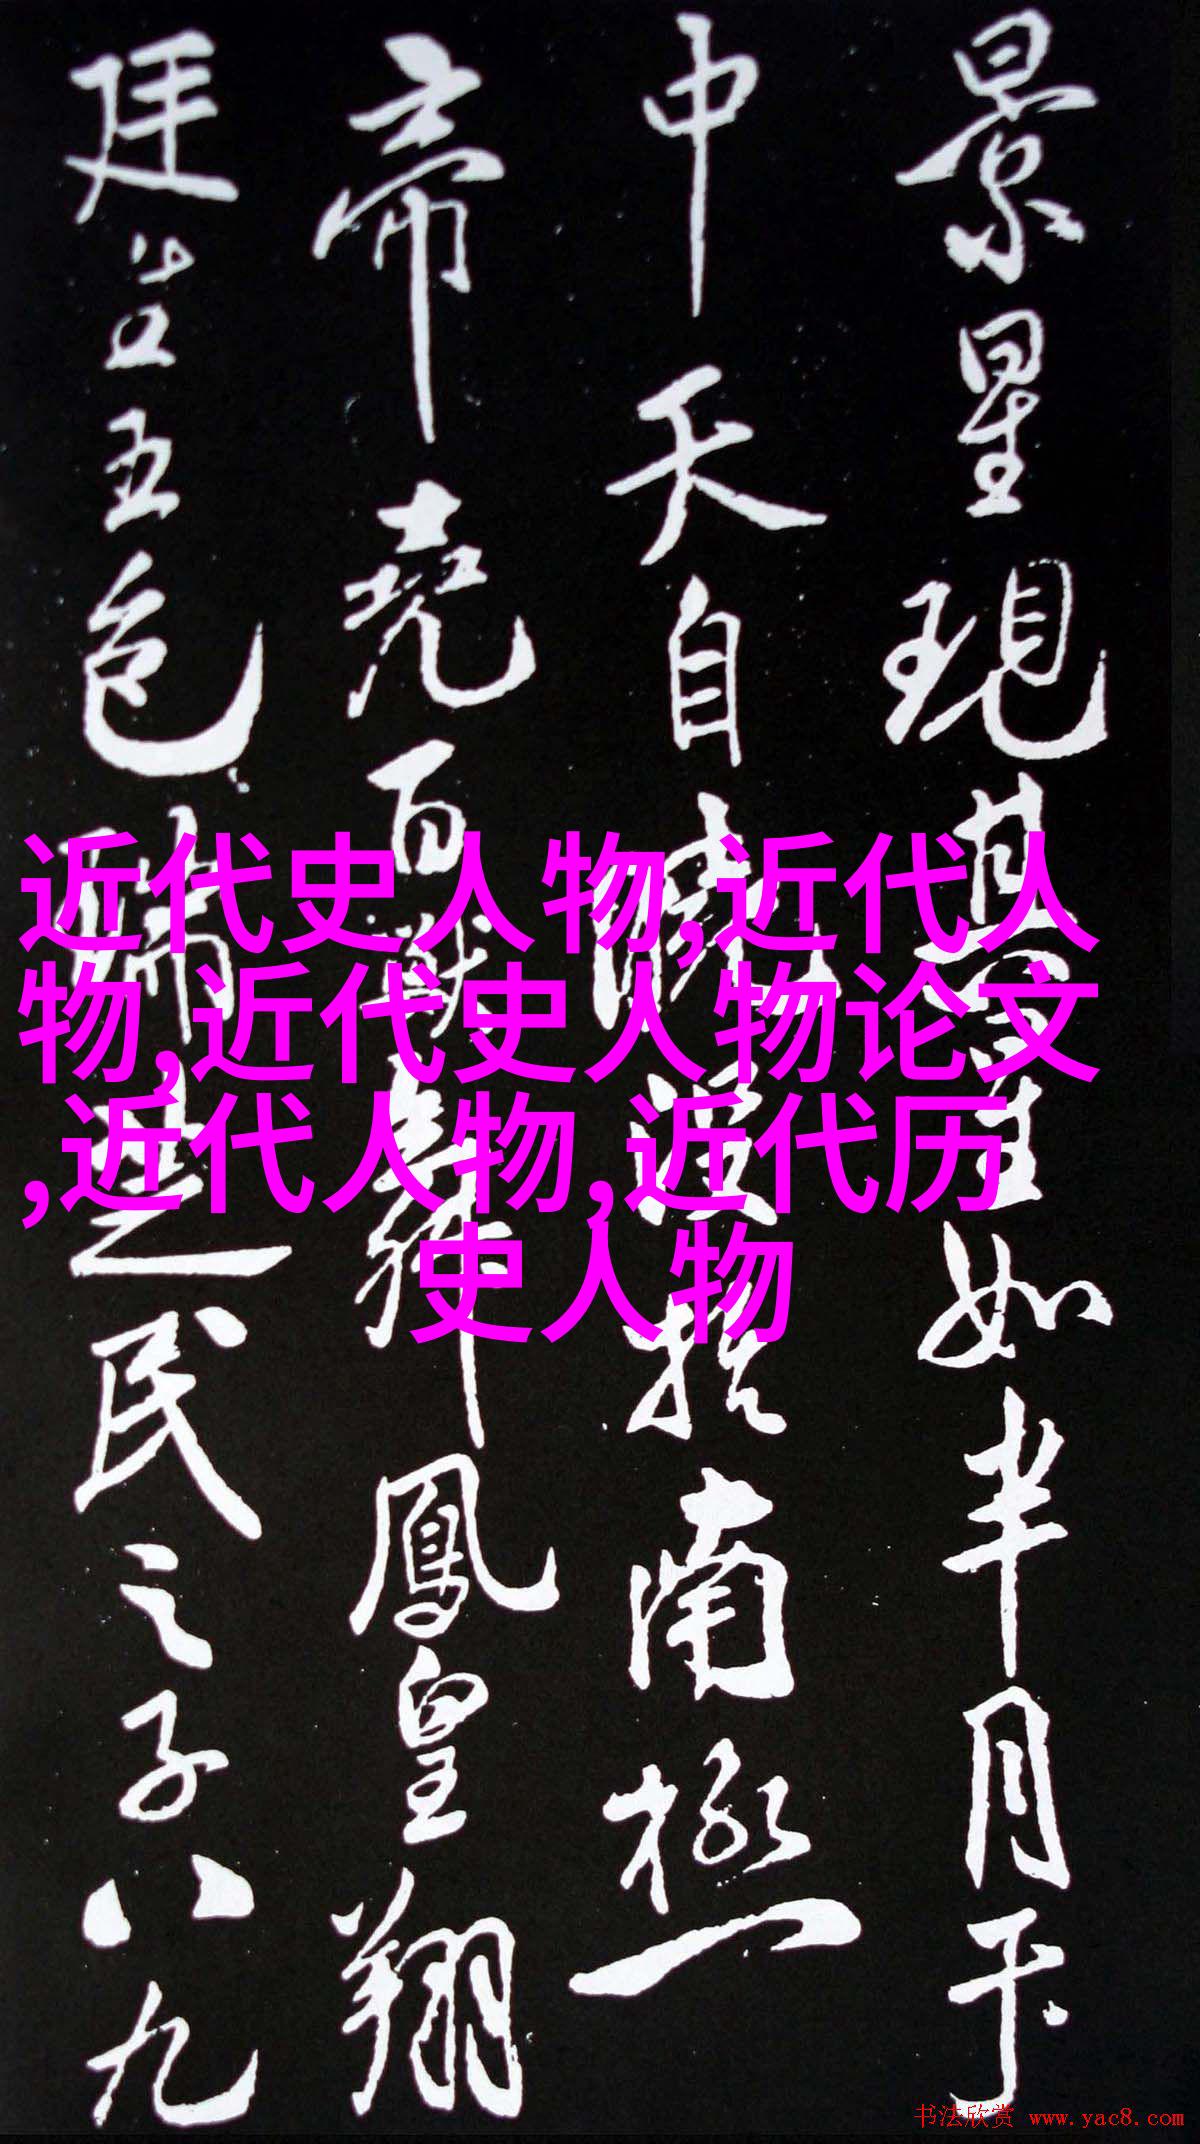 景星現其星如半月下
中天自
南極一
帝堯百獸舞鳳皇翔
廷
五色
民之子八九
近代史人物,近代人
物,近代史人物论文
,近代人物,近代历
史人物
书法欣赏 www.yac8.com